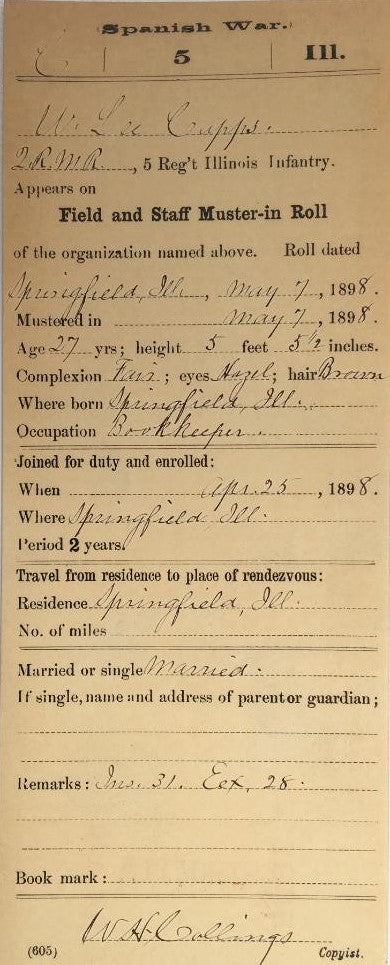 Spanish War.
C | 5 | Ill.
W. Lee Capps.
2. R. M. R., 5 Reg't Illinois Infantry.
Appears on
Field and Staff Muster-in Roll
of the organization named above. Roll dated
Springfield, Ill., May 7, 1898.
Mustered in May 7, 1898.
Age 27 yrs; height 5 feet 5½ inches.
Complexion Fair; eyes Hazel; hair Brown
Where born Springfield, Ill.
Occupation Bookkeeper.
Joined for duty and enrolled:
When Apr. 25, 1898.
Where Springfield, Ill.
Period 2 years.
Travel from residence to place of rendezvous:
Residence Springfield, Ill.
No. of miles
Married or single Married.
If single, name and address of parent or guardian;
Remarks: Ins. 31. Eex, 28.
Book mark:
W H Collings
(605) Copyist.